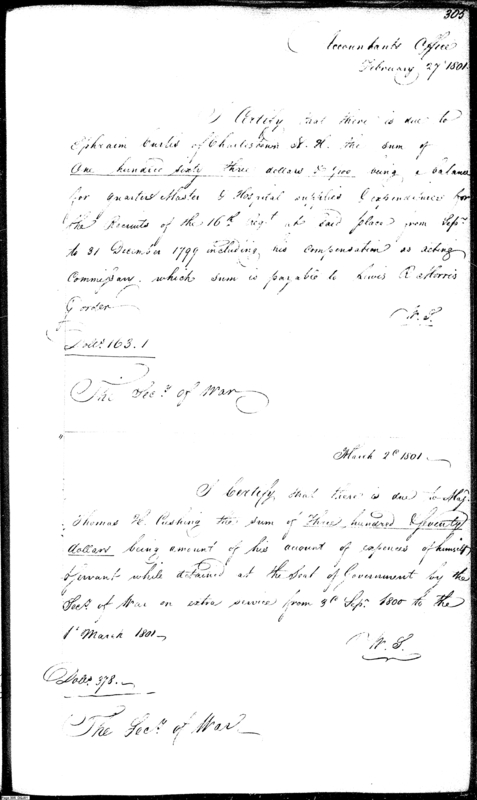 305
Accountants Office
February 27th 1801.
I Certify that there is due to
Ephraim Curtis of Charlestown N. H. the sum of
One hundred sixty three dollars & being a balance
for Quarter Master & Hospital supplies for
the Recruits of the 16th Regt at said place from Sepr.
to 31 December 1799 including his compensation as acting
Commissary which sum is payable to Lewis R Morris
or order
W. S.
Dolls. 163.1
The Secy. of War
March 2d 1801.
I Certify that there is due to Maj.
Thomas H. Cushing the sum of Three hundred & Seventy
dollars being amount of his account of expences of himself
& servant while detained at the Seat of Government by the
Secy. of War on extra service from Sepr. 1800 to the
1st March 1801
W. S.
Dolls. 378.
The Secy. of War